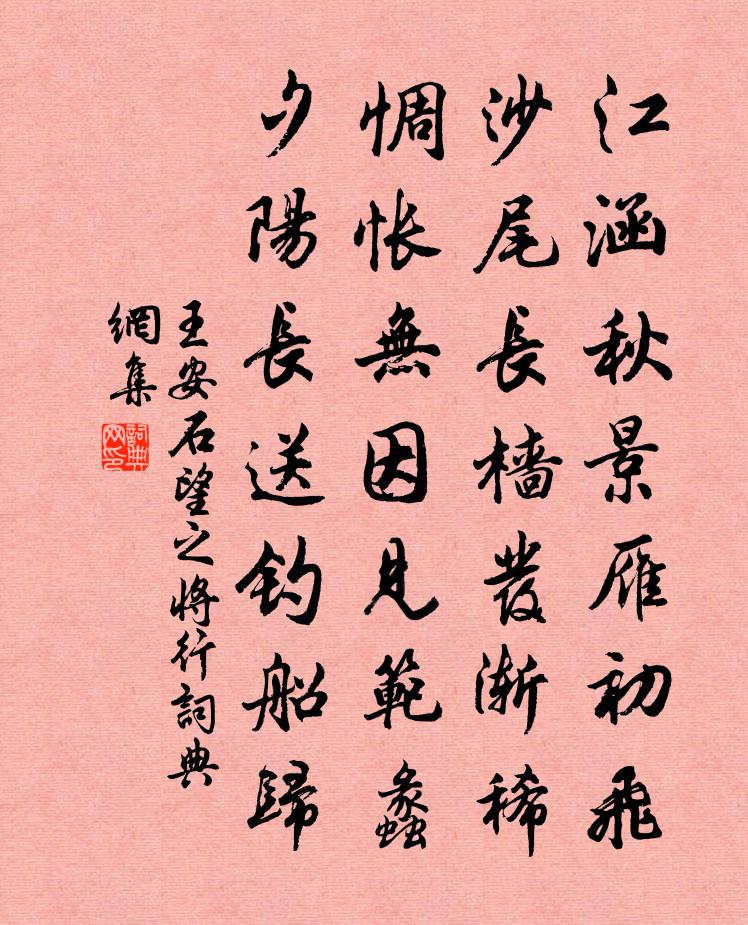 江涵秋景雁初飛
沙尾長檣發漸稀
惆悵無因見範蠡
夕陽長送釣船歸
王安石望之將行詞典
網集
詞典
网印